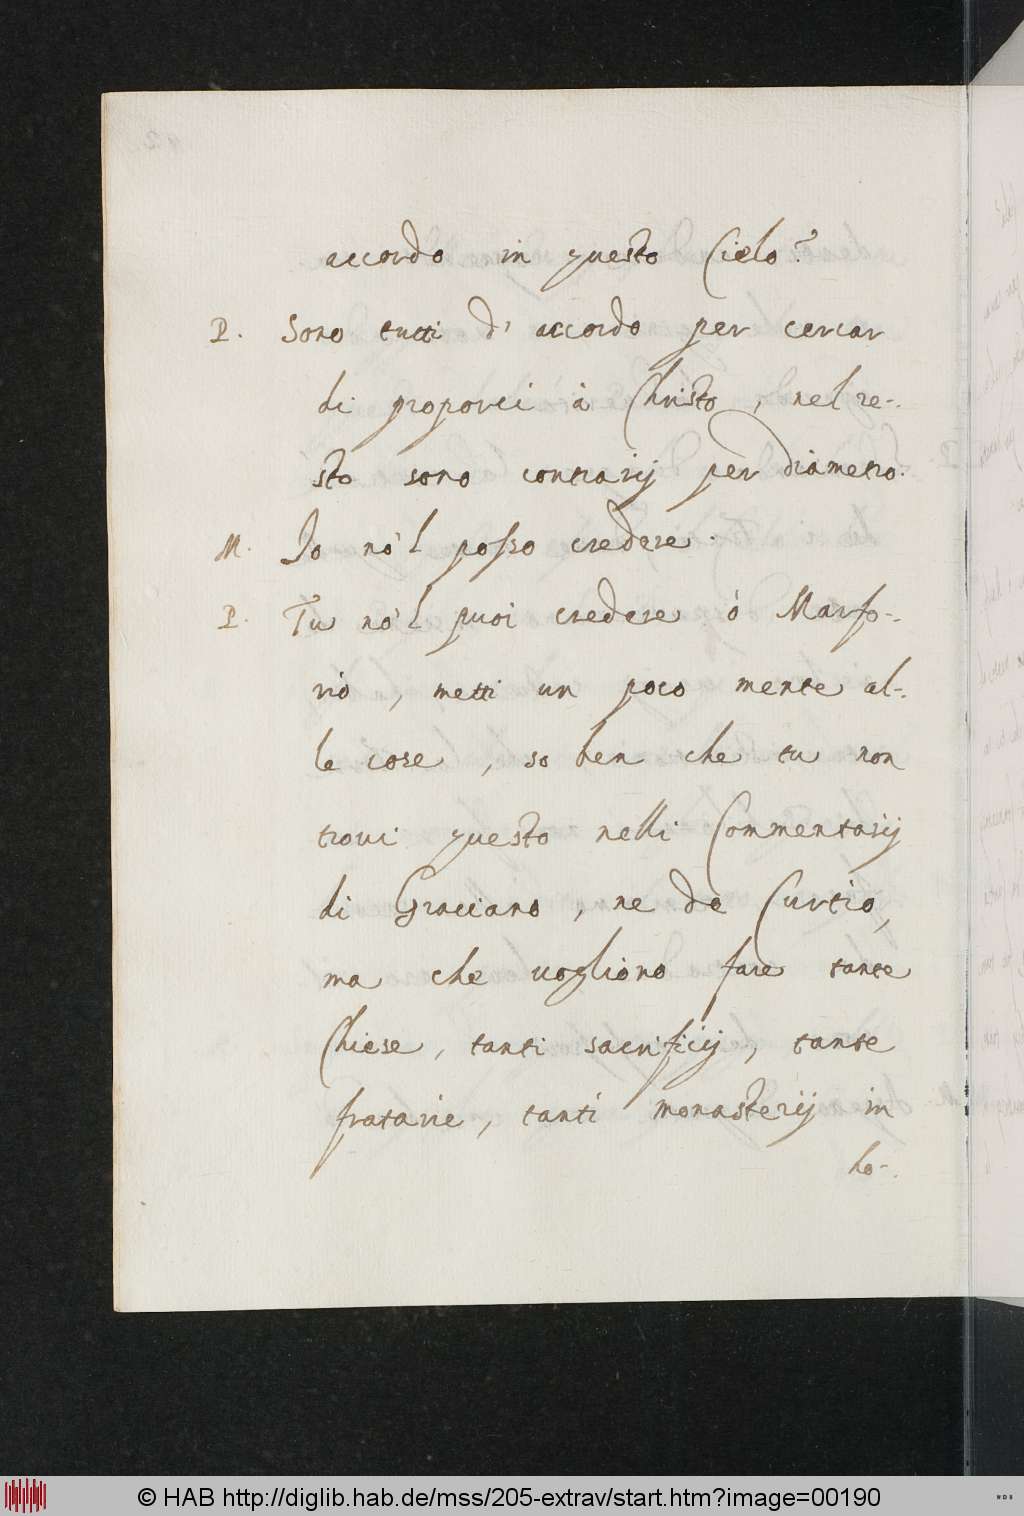 accordo in questo Cielo?
P. Sono tutti d' accordo per cercar
di proporci à Christo, nel re-
sto sono contrarij per diametro.
M. Io no'l posso credere.
P. Tu no'l puoi credere ò Marfo-
rio, metti un poco mente al-
le cose, so ben che tu non
troui questo nelli Commentarij
di Graciano, ne de Curtio,
ma che uogliono fare tante
Chiese, tanti sacrificij, tante
fratarie, tanti monasterij in
ho-
© HAB http://diglib.hab.de/mss/205-extrav/start.htm?image=00190